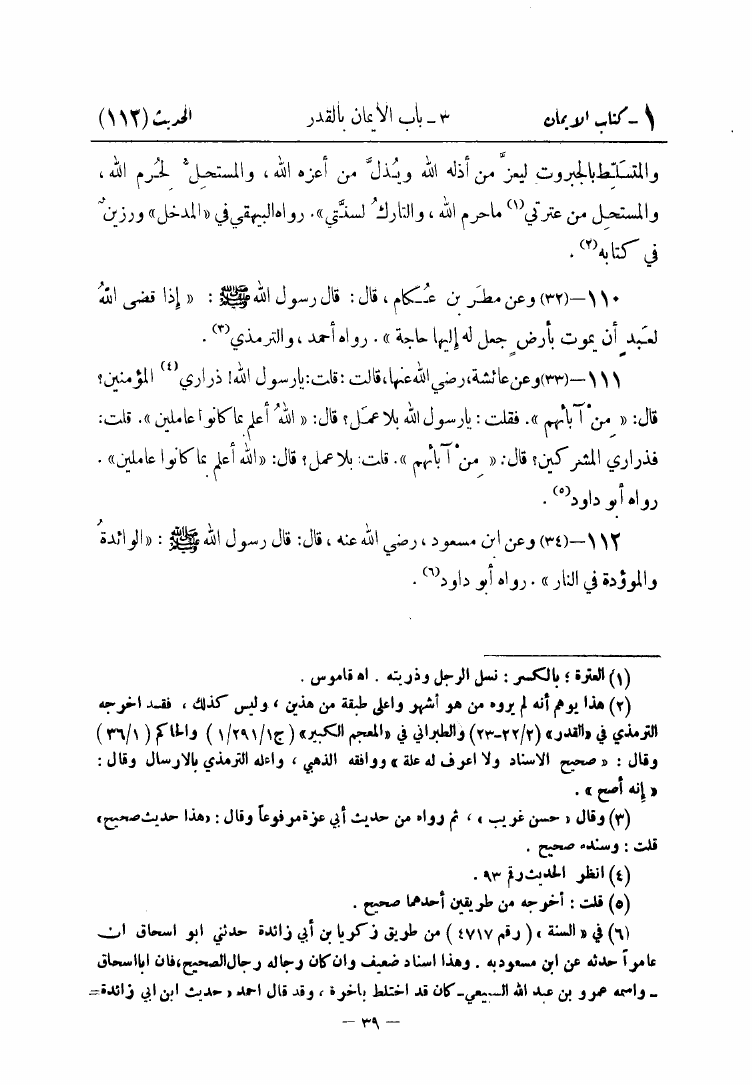 ١ - كتاب الايمان ٣ - باب الايمان بالقدر الحديث (١١٢)
والمتسَلِّط بالجبروت ليعزَّ من أذله الله ويُذلَّ من أعزه الله ، والمستحلُّ لحُرم الله ،
والمستحل من عترتي(١) ماحرم الله ، والتاركُ لسنَّتي» . رواه البيهقي في «المدخل» ورزينٌ
في كتابه(٢) .
١١٠ - (٣٢) وعن مطَر بن عُكام ، قال : قال رسول الله ﷺ : « إذا قضى اللهُ
لعَبدٍ أن يموت بأرضٍ جعل له إليها حاجة » . رواه أحمد ، والترمذي(٣) .
١١١ - (٣٣) وعن عائشة ، رضي الله عنها ، قالت : قلت : يارسول الله! ذراري(٤) المؤمنين؟
قال : « مِنْ آبائهم » . فقلت : يارسول الله بلا عمَل؟ قال : « اللهُ أعلم بما كانوا عاملين » . قلت :
فذراري المشركين؟ قال : « مِنْ آبائهم » . قلت : بلا عمل؟ قال : «الله أعلم بما كانوا عاملين» .
رواه أبو داود(٥) .
١١٢ - (٣٤) وعن ابن مسعود ، رضي الله عنه ، قال : قال رسول الله ﷺ : «الوائدةُ
والموؤدة في النار » . رواه أبو داود(٦) .
(١) العترة ؛ بالكسر : نسل الرجل وذريته . اه قاموس .
(٢) هذا يوهم أنه لم يروه من هو أشهر واعلى طبقة من هذين ، وليس كذلك ، فقد اخرجه
الترمذي في «القدر» (٢٢/٢-٢٣) والطبراني في «المعجم الكبير» (ج١/٢٩١/١) والحاكم (٣٦/١)
وقال : « صحيح الاسناد ولا اعرف له علة » ووافقه الذهبي ، واعله الترمذي بالارسال وقال :
« إنه أصح » .
(٣) وقال « حسن غريب » ، ثم رواه من حديث أبي عزة مرفوعاً وقال : «هذا حديث صحيح»
قلت : وسنده صحيح .
(٤) انظر الحديث رقم ٩٣ .
(٥) قلت : أخرجه من طريقين أحدهما صحيح .
(٦) في « السنة » ( رقم ٤٧١٧ ) من طريق زكريا بن أبي زائدة حدثني ابو اسحاق ان
عامراً حدثه عن ابن مسعود به . وهذا اسناد ضعيف وان كان رجاله رجال الصحيح ، فان ابا اسحاق
- واسمه عمرو بن عبد الله السبيعي - كان قد اختلط بآخرة ، وقد قال احمد « حديث ابن ابي زائدة =
- ٣٩ -